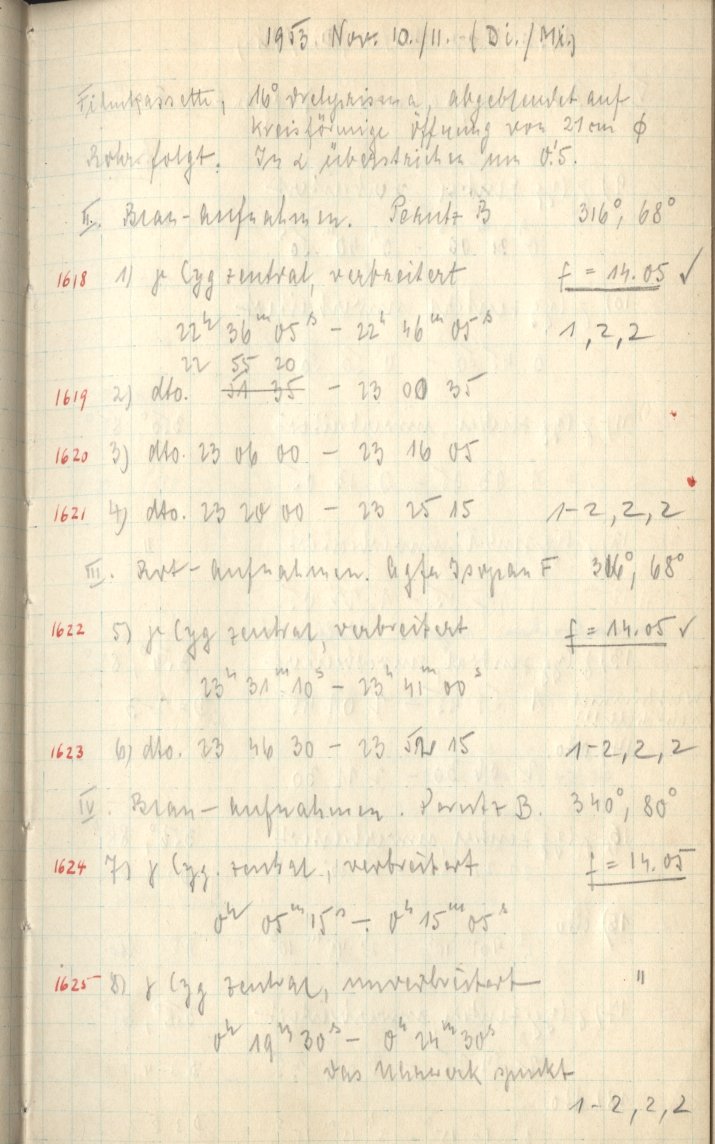 1953 Nov. 10./11. (Di./Mi.)
Filmkassette, 16° Drehprisma, abgeblendet auf
kreisförmige Öffnung von 21 cm ϕ
Rohr folgt. In α überstrichen um 0.'5.
II. Blau-Aufnahmen. Perutz B 316°, 68°
1618 1) γ Cyg zentral, verbreitert f = 14.05 ✓
22h 36m 05s – 22h 46m 05s 1, 2, 2
22 55 20
1619 2) dto. 51 35 – 23 00 35
1620 3) dto. 23 06 00 – 23 16 05
1621 4) dto. 23 20 00 – 23 25 15 1-2, 2, 2
III. Rot-Aufnahmen. Agfa Isopan F 316°, 68°
1622 5) γ Cyg zentral, verbreitert f = 14.05 ✓
23h 31m 10s – 23h 41m 00s
1623 6) dto. 23 46 30 – 23 52 15 1-2, 2, 2
IV. Blau-Aufnahmen. Perutz B. 340°, 80°
1624 7) γ Cyg. zentral, verbreitert f = 14.05
0h 05m 15s – 0h 15m 05s
1625 8) γ Cyg zentral, unverbreitert "
0h 19m 30s – 0h 24m 30s
Das Uhrwerk spukt
1-2, 2, 2